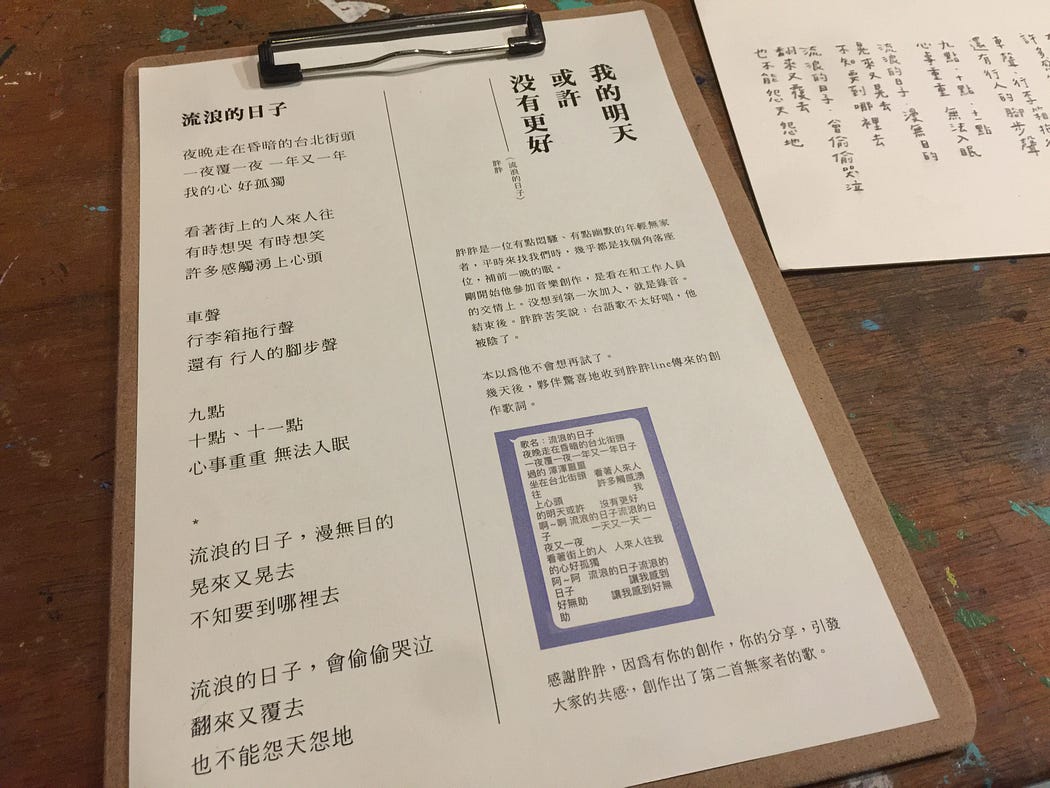 流浪的日子
夜晚走在昏暗的台北街頭
一夜覆一夜 一年又一年
我的心 好孤獨
看著街上的人來人往
有時想哭 有時想笑
許多感觸湧上心頭
車聲
行李箱拖行聲
還有 行人的腳步聲
九點
十點、十一點
心事重重 無法入眠
*
流浪的日子，漫無目的
晃來又晃去
不知要到哪裡去
流浪的日子，會偷偷哭泣
翻來又覆去
也不能怨天怨地
我的明天
或許
沒有更好
（流浪的日子）
胖胖
胖胖是一位有點悶騷、有點幽默的年輕無家
者，平時來找我們時，幾乎都是找個角落座
位，補前一晚的眠。
剛開始他參加音樂創作，是看在和工作人員
的交情上。沒想到第一次加入，就是錄音。
結束後。胖胖苦笑說：台語歌不太好唱，他
被陰了。
本以為他不會想再試了。
幾天後，夥伴驚喜地收到胖胖line傳來的創
作歌詞。
歌名：流浪的日子
夜晚走在昏暗的台北街頭
一夜覆一夜一年又一年日子
過的 渾渾噩噩
坐在台北街頭 看著人來人
往 許多觸感湧
上心頭 我
的明天或許 沒有更好
啊~啊 流浪的日子流浪的日
子 一天又一天 一
夜又一夜
看著街上的人 人來人往我
的心好孤獨
阿~阿 流浪的日子流浪的
日子 讓我感到
好無助 讓我感到好無
助
感謝胖胖，因為有你的創作，你的分享，引發
大家的共感，創作出了第二首無家者的歌。
許多
車聲、行李箱拖行
還有行人的腳步聲
九點、十點、十一點
心事重重 無法入眠
流浪的日子、漫無目的
晃來又晃去
不知要到哪裡去
流浪的日子、會偷偷哭泣
翻來又覆去
也不能怨天怨地